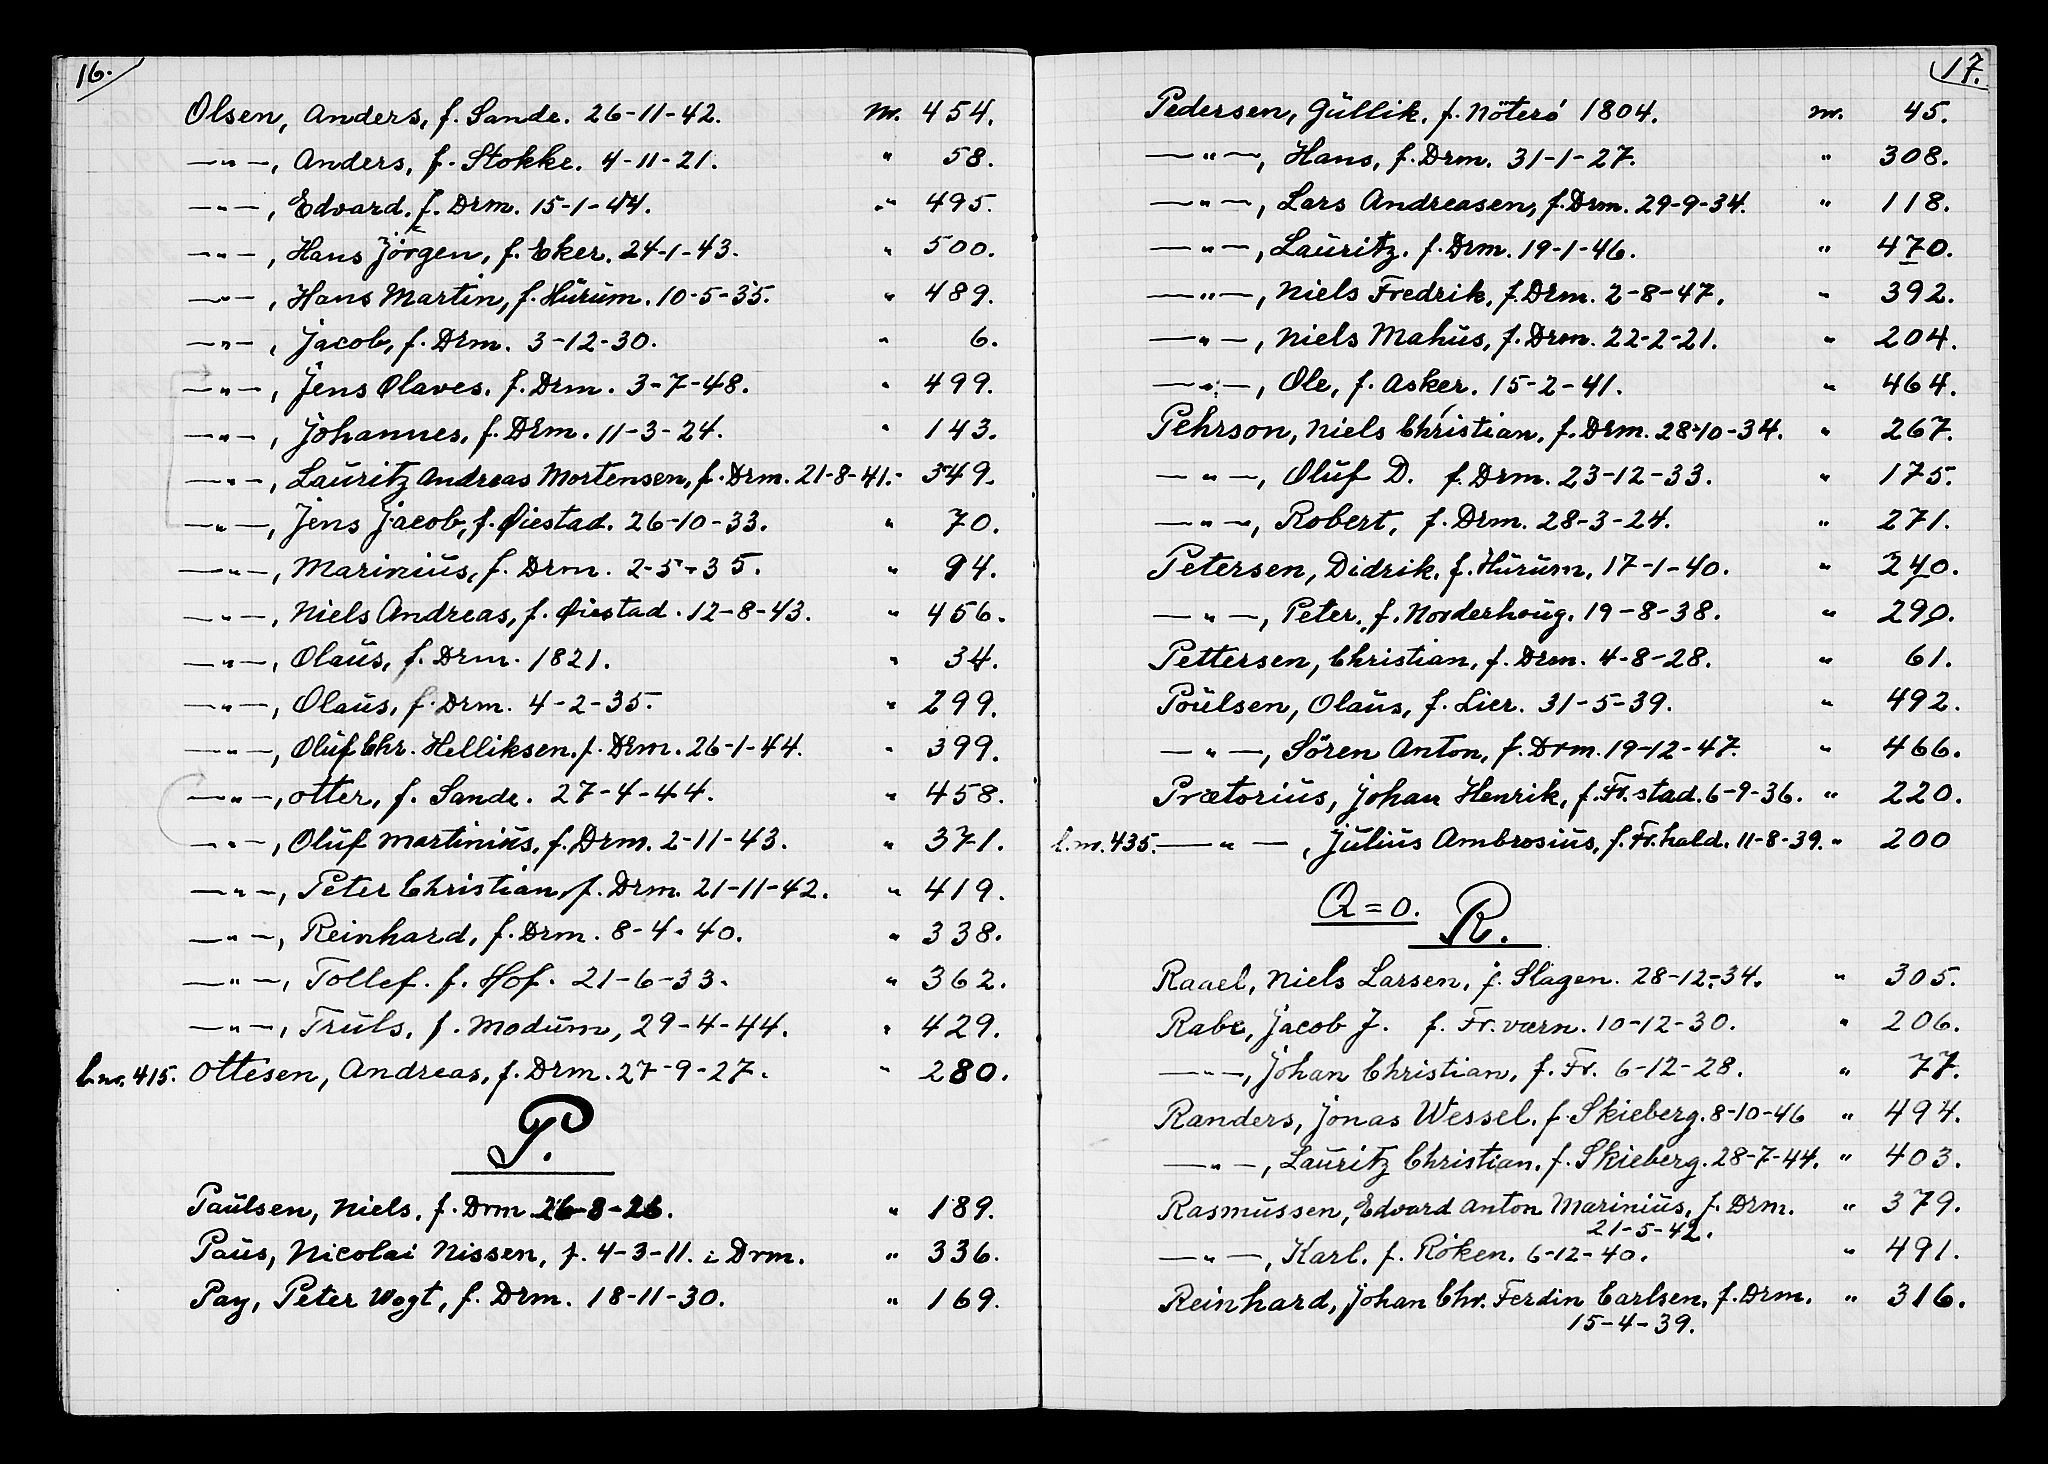 16.
Olsen, Anders, f. Sande. 26-11-42. nr. 454.
—"—, Anders, f. Stokke. 4-11-21. " 58.
—"—, Edvard, f. Drm. 15-1-44. " 495.
—"—, Hans Jörgen, f. Eker. 24-1-43. " 500.
—"—, Hans Martin, f. Hürüm. 10-5-35. " 489.
—"—, Jacob, f. Drm. 3-12-30. " 6.
—"—, Jens Olaves. f. Drm. 3-7-48. " 499.
—"—, Johannes, f. Drm. 11-3-24. " 143.
—"—, Laüritz Andreas Mortensen, f. Drm. 21-8-41. " 349.
—"—, Jens Jacob, f. Øiestad. 26-10-33. " 70.
—"—, Mariniüs, f. Drm. 2-5-35. " 94.
—"—, Niels Andreas, f. Øiestad. 12-8-43. " 456.
—"—, Olaüs, f. Drm. 1821. " 34.
—"—, Olaüs, f. Drm. 4-2-35. " 299.
—"—, Olüf Chr. Helliksen. f. Drm. 26-1-44. " 399.
—"—, Otter, f. Sande. 27-4-44. " 458.
—"—, Olüf Martiniüs, f. Drm. 2-11-43. " 371.
—"—, Peter Christian, f. Drm. 21-11-42. " 419.
—"—, Reinhard, f. Drm. 8-4-40. " 338.
—"—, Tollef. f. Hof. 21-6-33. " 362.
—"—, Trüls, f. Modüm, 29-4-44. " 429.
l.nr. 415. Ottesen, Andreas, f. Drm. 27-9-27. " 280.
P.
Paülsen, Niels, f. Drm 26-8-26. " 189.
Paüs, Nicolai Nissen, f. 4-3-11. i Drm. " 336.
Pay, Peter Wogt, f. Drm. 18-11-30. " 169.
17.
Pedersen, Güllik, f. Nöterö 1804. nr. 45.
—"—, Hans, f. Drm. 31-1-27. " 308.
—"—, Lars Andreasen, f. Drm. 29-9-34. " 118.
—"—, Laüritz. f. Drm. 19-1-46. " 470.
—"—, Niels Fredrik, f. Drm. 2-8-47. " 392.
—"—, Niels Mahüs, f. Drm. 22-2-21. " 204.
—"—, Ole, f. Asker. 15-2-41. " 464.
Pehrson, Niels Christian, f. Drm. 28-10-34. " 267.
—"—, Olüf D. f. Drm. 23-12-33. " 175.
—"—, Robert, f. Drm. 28-3-24. " 271.
Petersen, Didrik. f. Hürüm. 17-1-40. " 240.
—"—, Peter, f. Norderhoüg. 19-8-38. " 290.
Pettersen, Christian, f. Drm. 4-8-28. " 61.
Poülsen, Olaüs, f. Lier. 31-5-39. " 492.
—"—, Sören Anton, f. Drm. 19-12-47. " 466.
Prætoriüs, Johan Henrik, f. Fr.stad. 6-9-36. " 220.
l.nr. 435. —"—, Jüliüs Ambrosiüs, f. Fr.hald. 11-8-39. " 200
Q = 0. R.
Raael, Niels Larsen, f. Slagen. 28-12-34. " 305.
Rabe, Jacob J. f. Fr.værn. 10-12-30. " 206.
—"—, Johan Christian, f. Fr. 6-12-28. " 77.
Randers, Jonas Wessel. f. Skieberg. 8-10-46 " 494.
—"—, Laüritz Christian. f. Skieberg. 28-7-44. " 403.
Rasmüssen, Edvard Anton Mariniüs, f. Drm. " 379.
21-5-42.
—"—, Karl. f. Röken. 6-12-40. " 491.
Reinhard, Johan Chr. Ferdin Carlsen, f. Drm. " 316.
15-4-39.